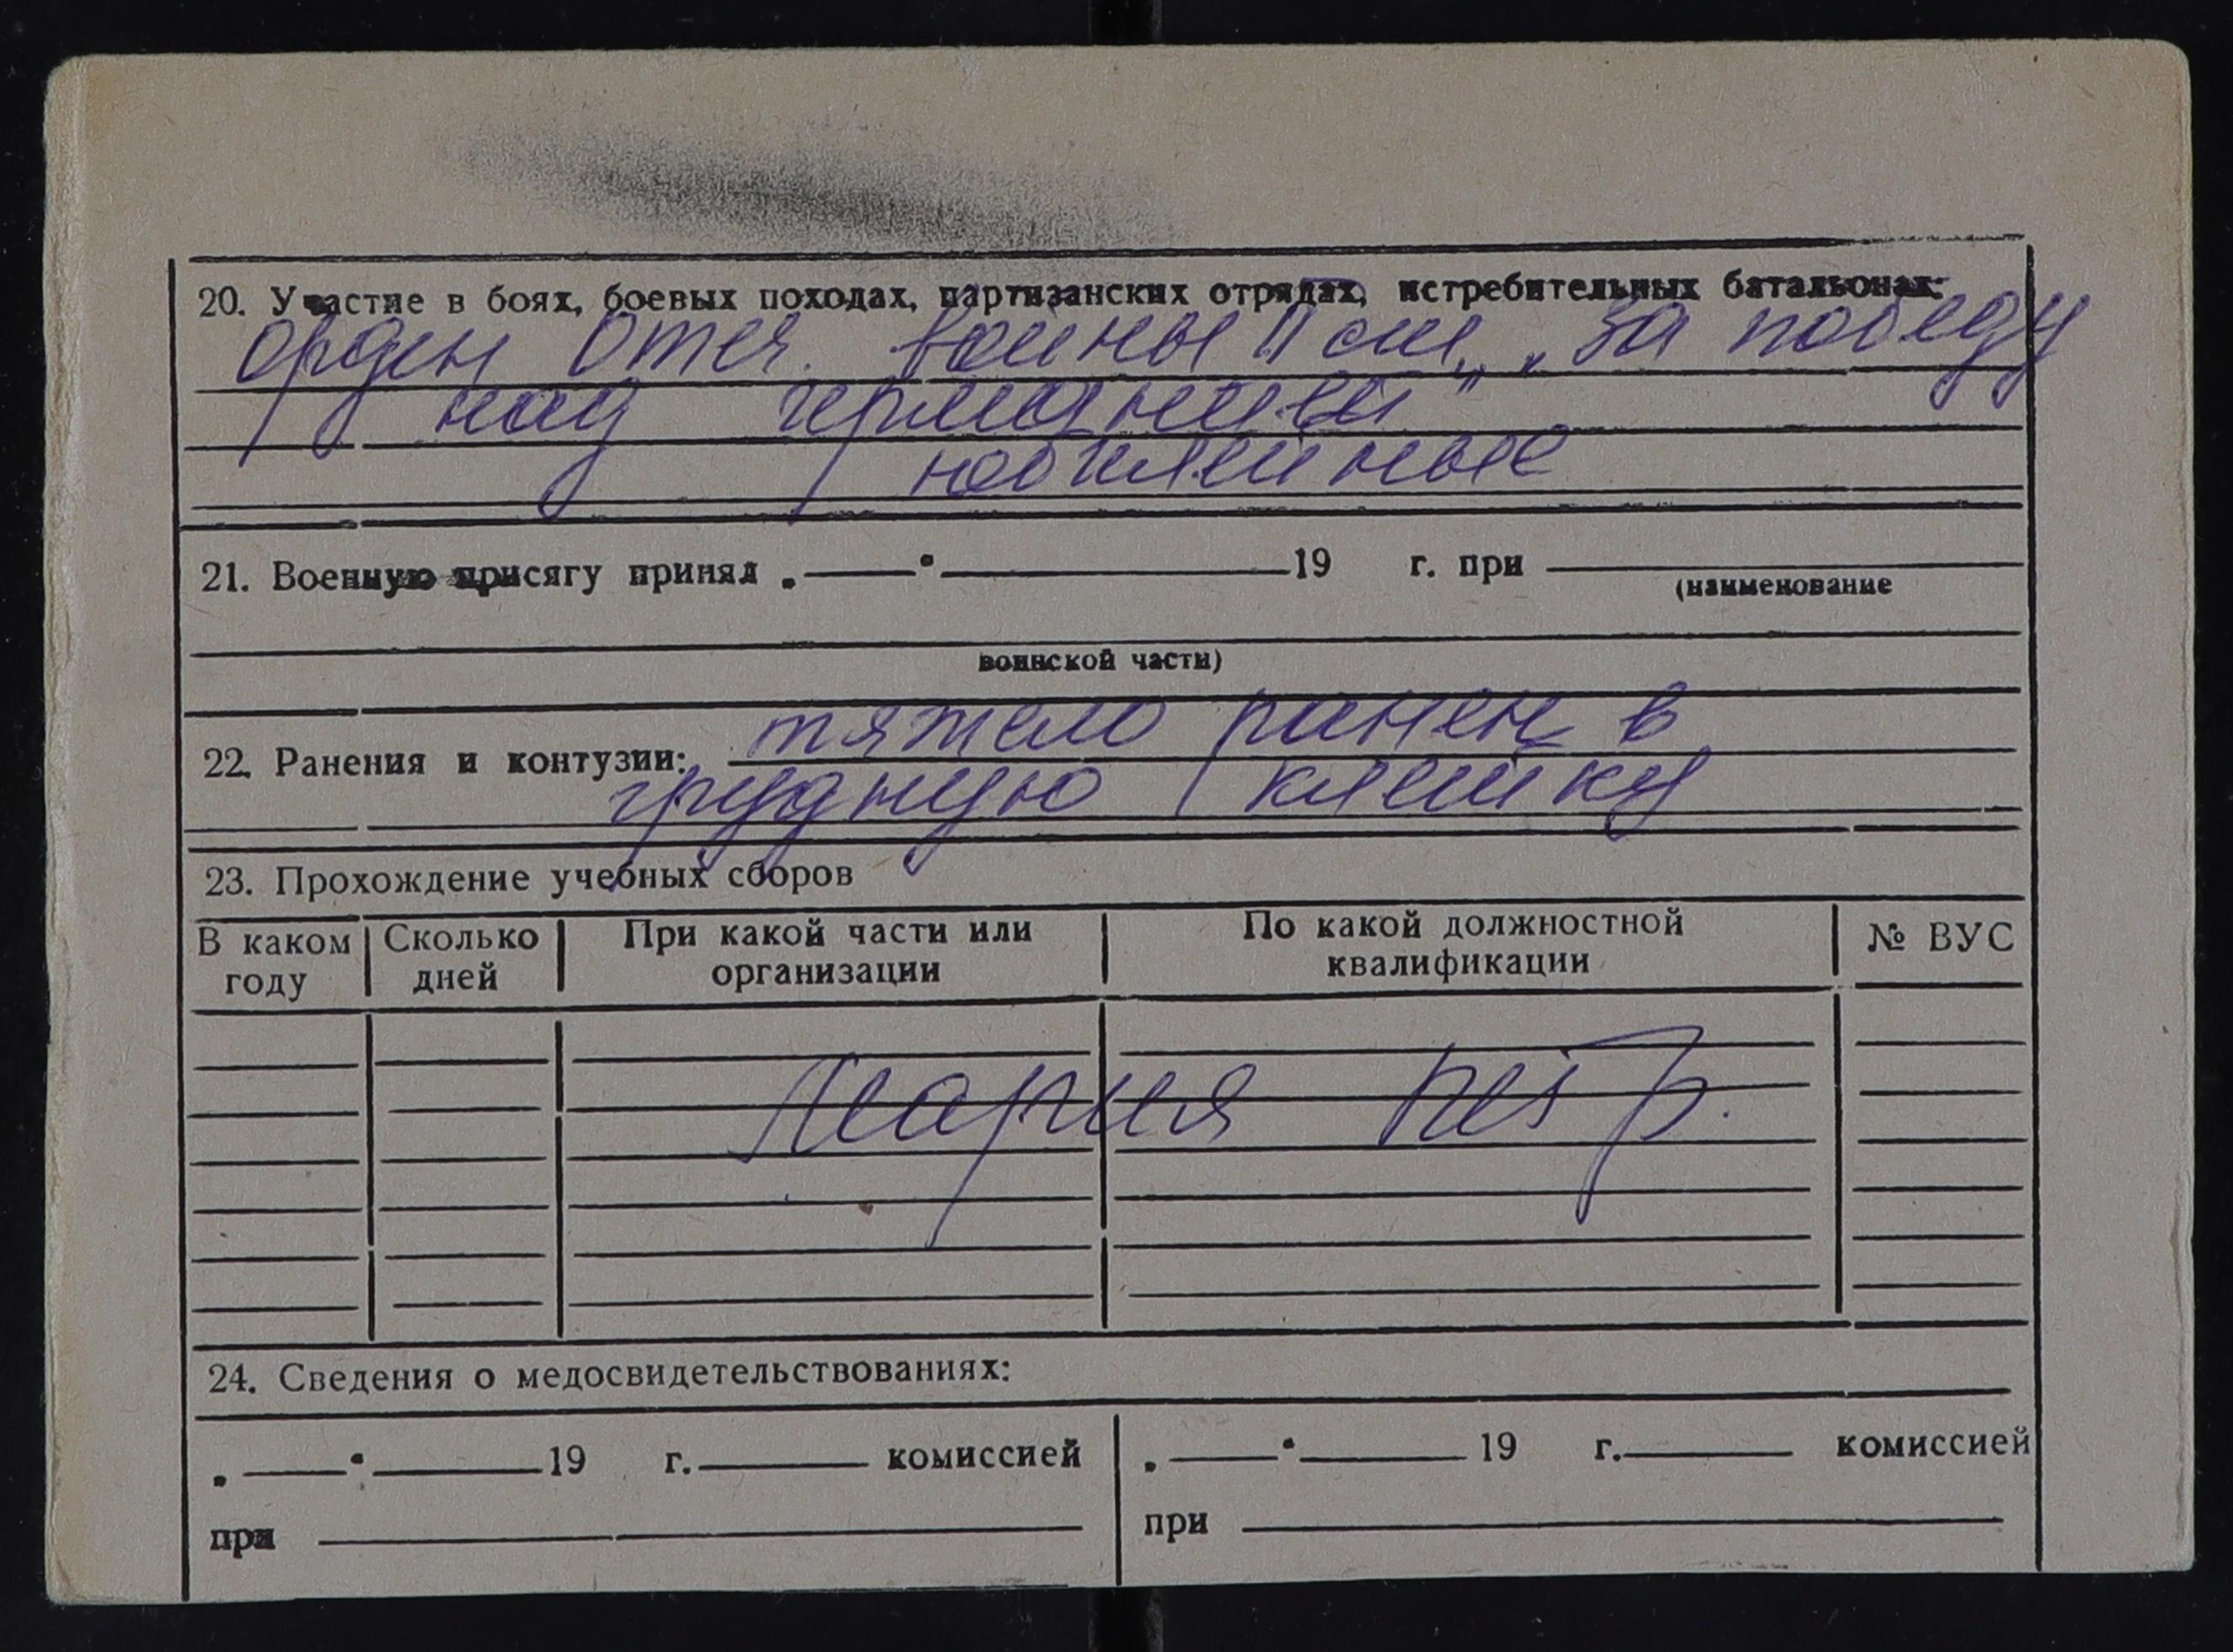 20. Участие в боях, боевых походах, партизанских отрядах, истребительных батальонах:
орден Отеч. войны II ст., „За победу
над германией"
юбилейные
21. Военную присягу принял „——"————19 г. при ————
(наименование
воинской части)
22. Ранения и контузии: тяжело ранен в
грудную клетку
23. Прохождение учебных сборов
В каком году | Сколько дней | При какой части или организации | По какой должностной квалификации | № ВУС
Мария
24. Сведения о медосвидетельствованиях:
„——"————19 г.———— комиссией | „——"————19 г.———— комиссией
при ———— | при ————